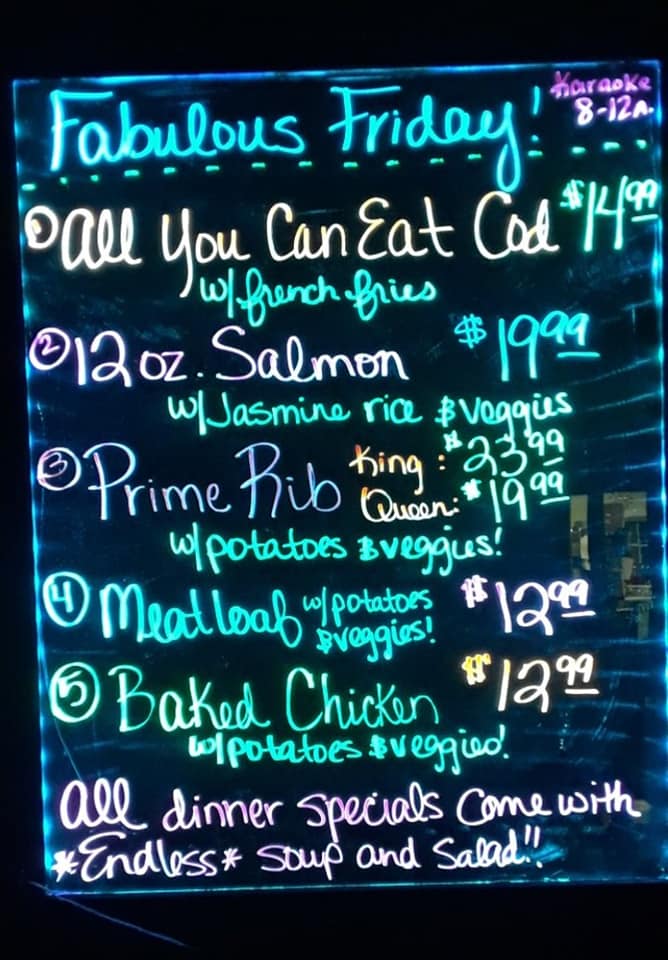 Fabulous Friday!
Karaoke
8-12a.
① All You Can Eat Cod $14.99
w/ french fries
② 12 oz. Salmon $19.99
w/ Jasmine rice & veggies
③ Prime Rib King: $23.99
Queen: $19.99
w/ potatoes & veggies!
④ Meatloaf w/ potatoes & veggies! $12.99
⑤ Baked Chicken $12.99
w/ potatoes & veggies!
All dinner specials come with
*Endless* soup and salad!!